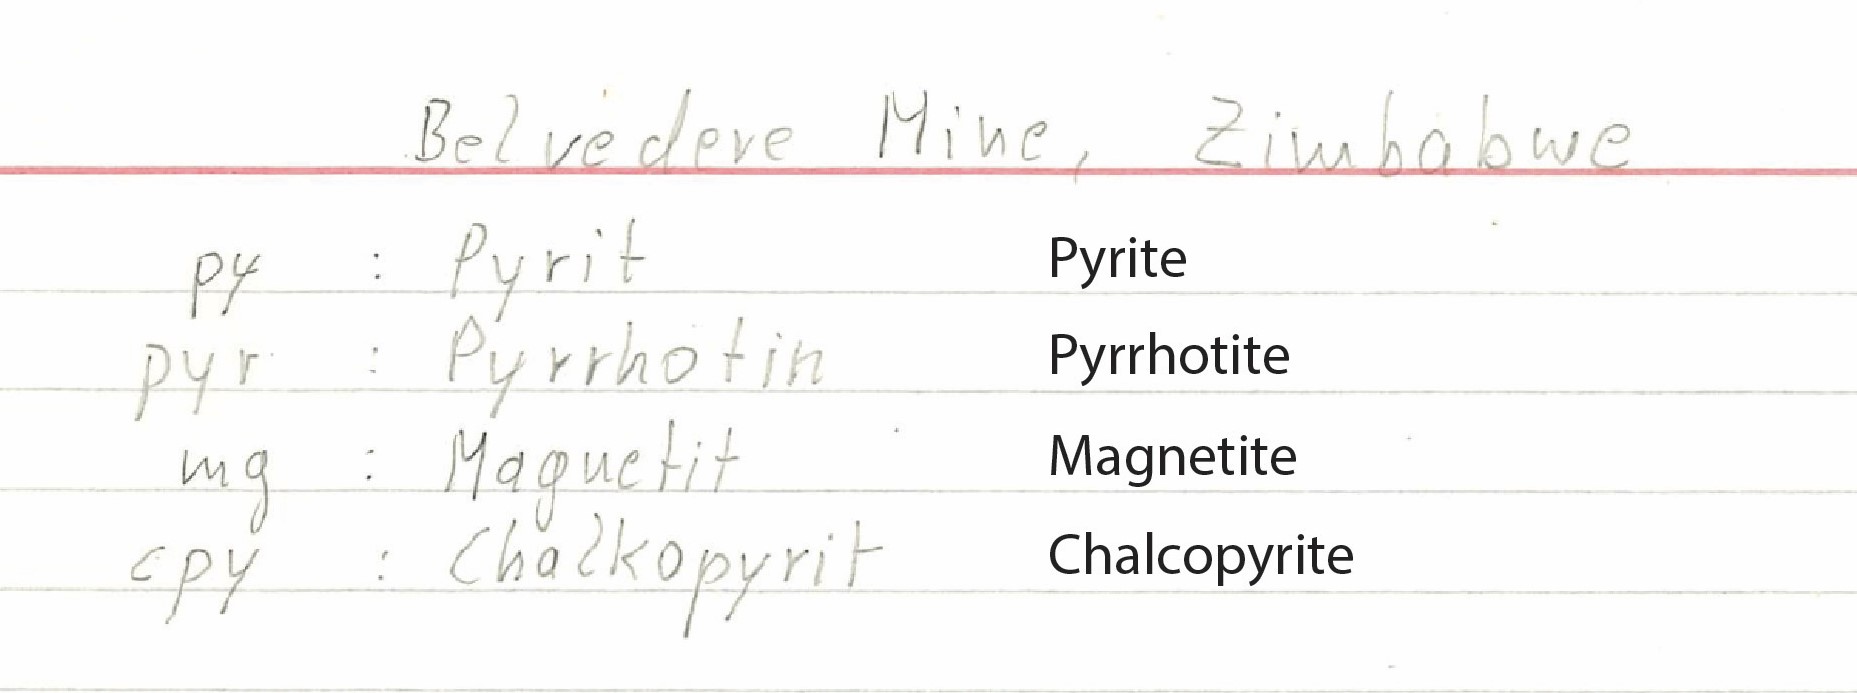 Belvedere Mine, Zimbabwe
py : Pyrit Pyrite
pyr : Pyrrhotin Pyrrhotite
mg : Magnetit Magnetite
cpy : Chalkopyrit Chalcopyrite